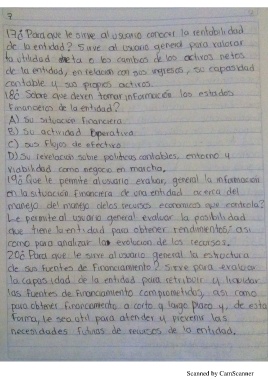 7
17¿ Para que le sirve al usuario conocer la rentabilidad
de la entidad? Sirve al usuario general para valorar
la utilidad neta o los cambios de los activos netos
de la entidad, en relacion con sus ingresos, su capacidad
contable y sus propios activos.
18¿ Sobre que deven tomar información los estados
financieros de la entidad?
A) Su situación financiera
B) Su actividad operativa
C) Sus flujos de efectivo
D) Su revelacion sobre politicas contables, entorno y
viabilidad como negocio en marcha.
19¿ Que le permite al usuario evaluar, general la información
en la situación financiera de una entidad acerca del
manejo del manejo de los recursos economicos que controla?
Le permite al usuario general evaluar la posibilidad
que tiene la entidad para obtener rendimientos asi
como para analizar la evolucion de los recursos.
20¿ Para que le sirve al usuario general la estructura
de sus fuentes de financiamiento? Sirve para evaluar
la capasidad de la entidad para retribuir y liquidar
las fuentes de financiamiento comprometidas, asi como
para obtener financiamiento a corto y largo plazo y, de esta
forma, le sea util para atender y prevenir las
necesidades futuras de recursos de la entidad.
Scanned by CamScanner